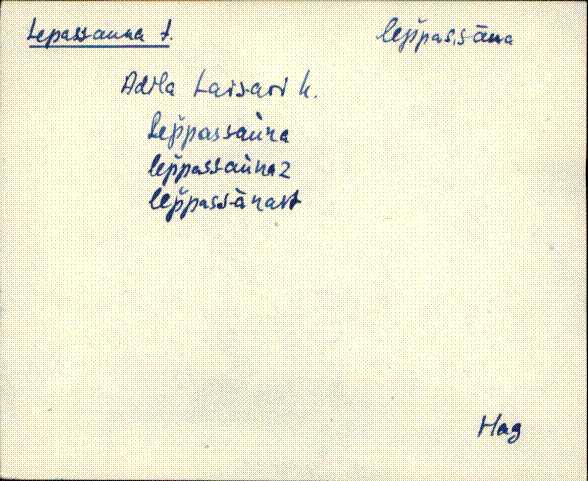 Lepassauna t. lep̆passāna
Adila Laisari k.
Lep̆passaùna
lep̆passaùnaz
lep̆passānast
Hag